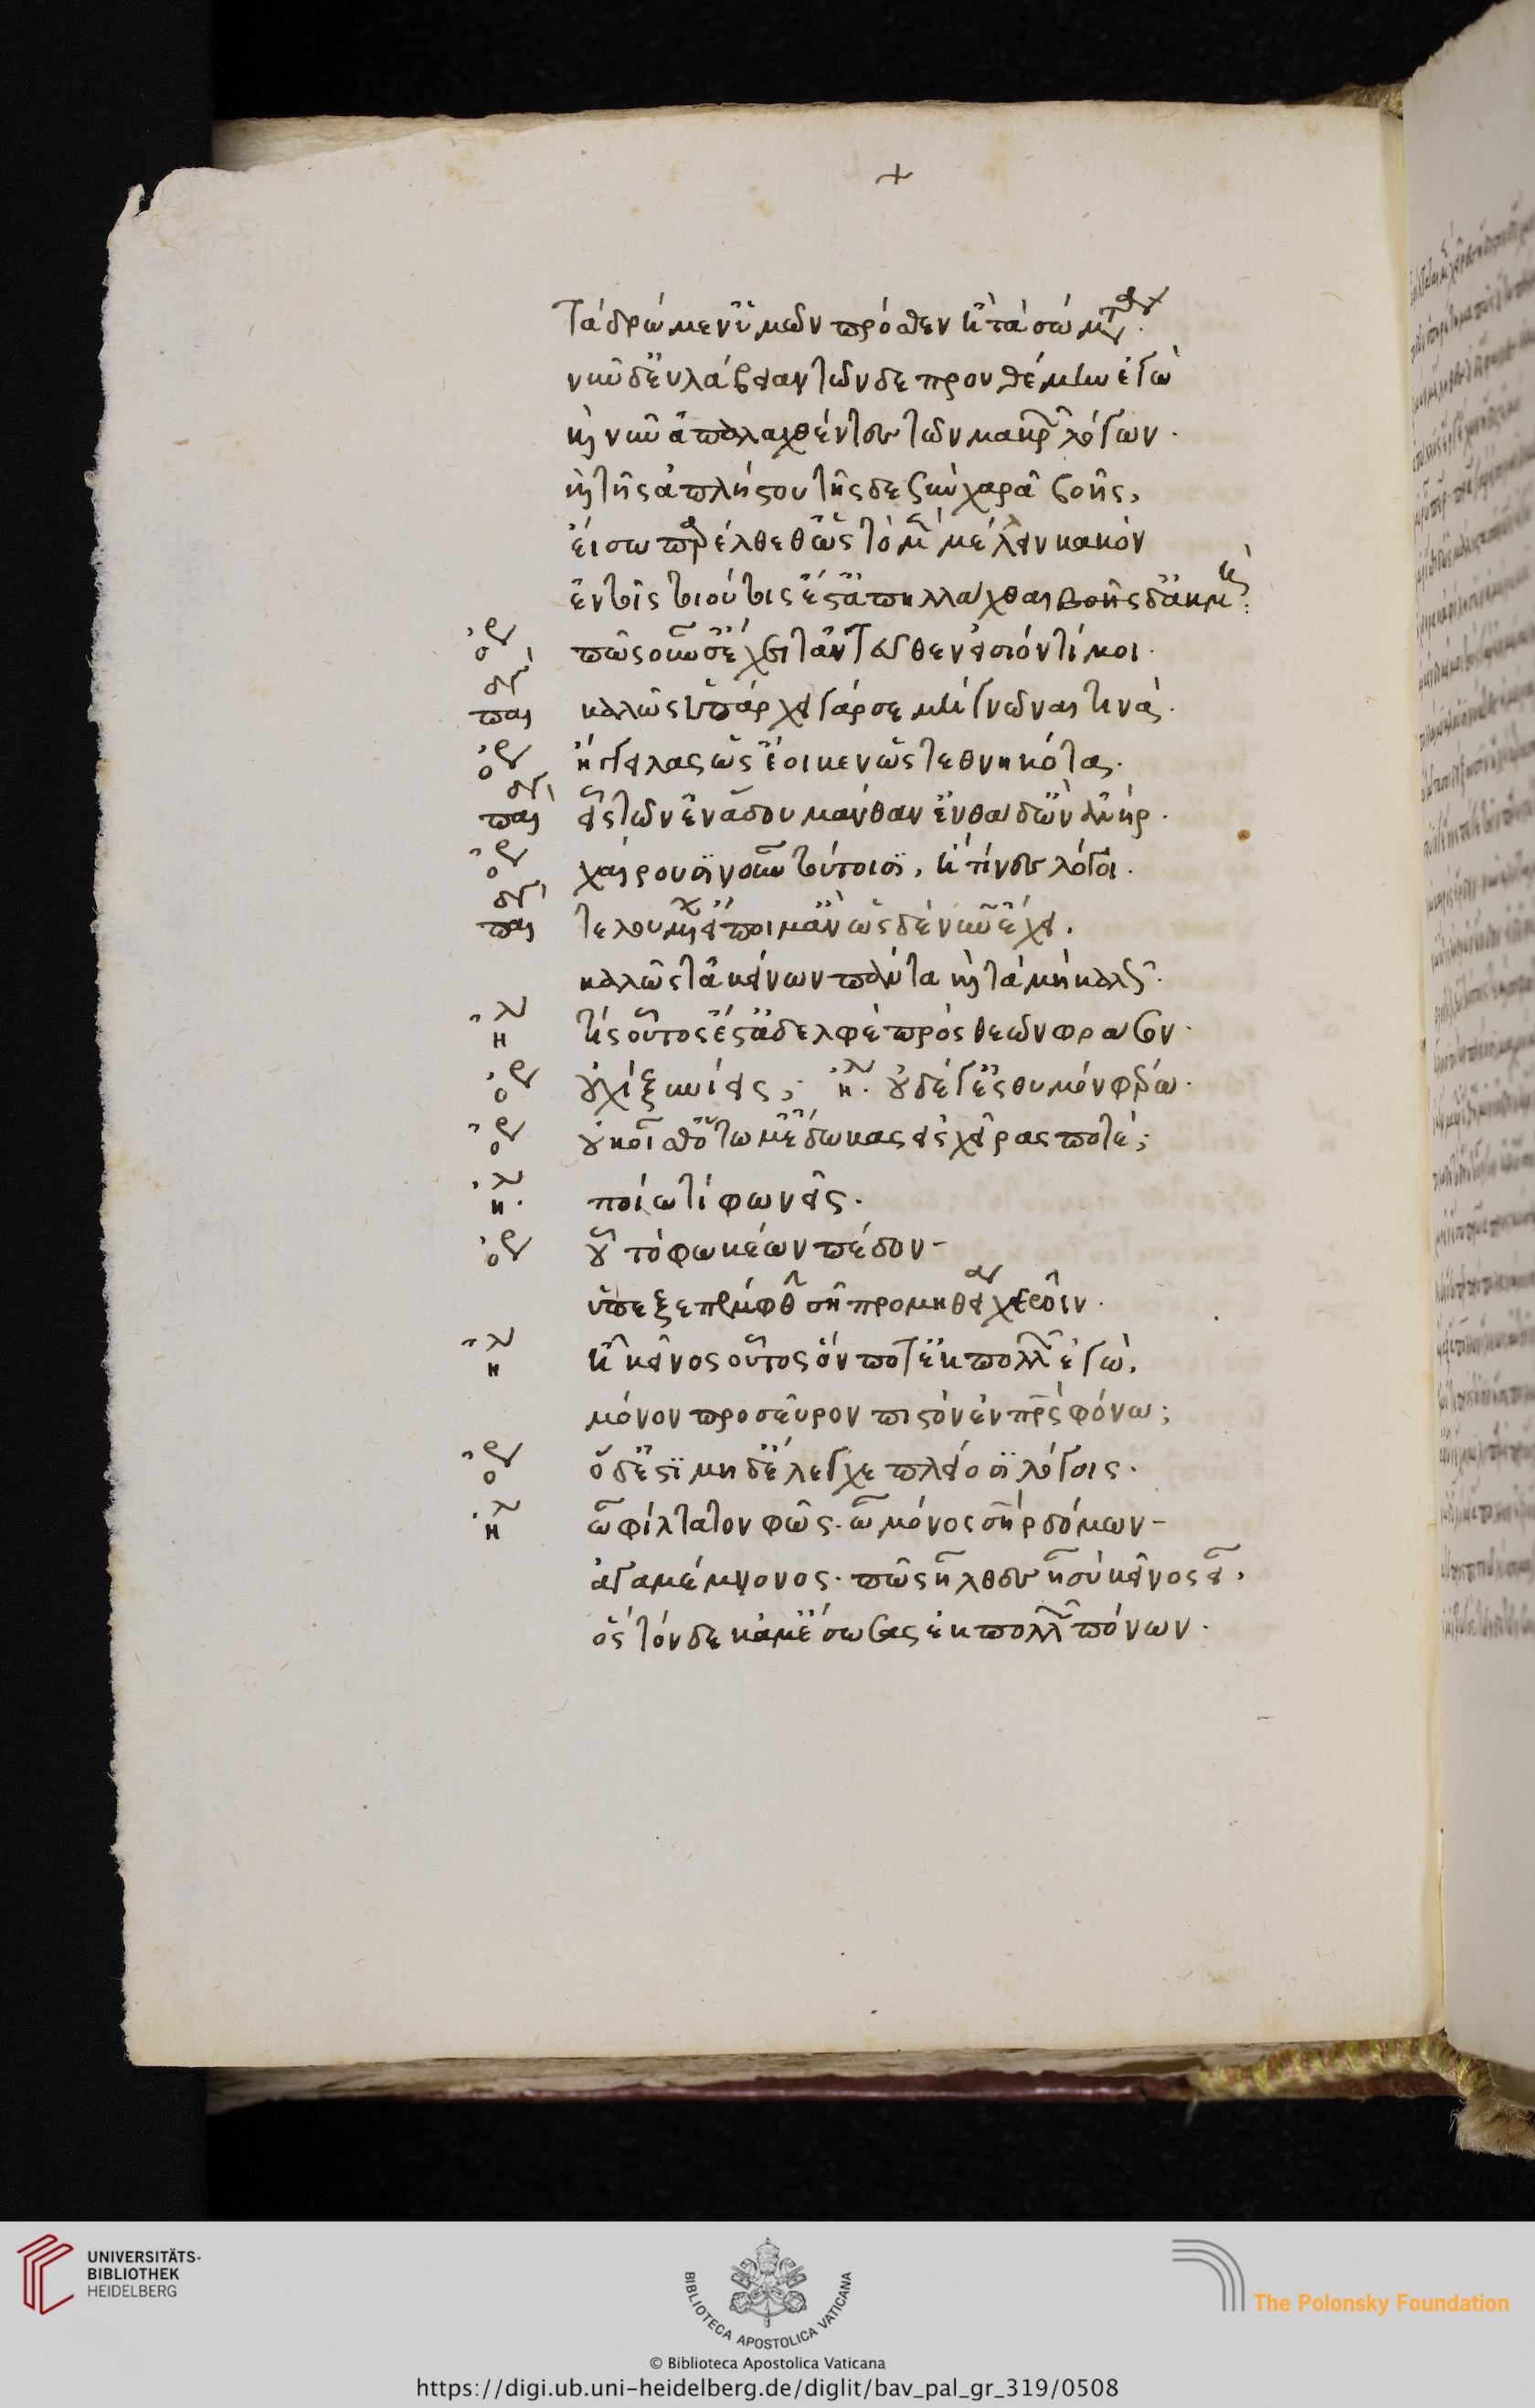 +
τὰ δρώμεν' ὑμῶν πρόσθεν ἢ τὰ σώματα·
νῦν δ' εὐλάβειαν τῶνδε προυθέμην ἐγὼ
καὶ νῦν ἀπαλλαχθέντες τῶν μακρῶν λόγων·
καὶ τῆς ἀπλήστου τῆσδε ξὺν χαρᾶ βοῆς,
εἴσω παρέλθεθ' ὡς τὸ μὲν μέλλειν κακὸν
ἐν τοῖς τοιούτοις ἔστ' ἀπηλλάχθαι βοῆς δ' ἀκμή:
ὀρ πῶς οὖν ἔχει τἀντεῦθεν εἰσιόντι μοι·
παιδαγ καλῶς ὑπάρχει γάρ σε μὴ γνῶναι τινά·
ὀρ ἤγγειλας ὡς ἔοικεν ὡς τεθνηκότα·
παιδαγ εἷς τῶν ἐν ἅδου μάνθαν' ἐνθάδ' ὢν ἀνήρ·
ὀρ χαίρουσιν οὖν τούτοισιν, ἢ τίνες λόγοι·
παιδαγ τελουμένων εἴποιμ' ἂν ὡς δὲ νῦν ἔχει·
καλῶς τὰ κείνων πάντα καὶ τὰ μὴ καλῶς·
ἠλ τίς οὗτος ἔστ' ἀδελφὲ πρὸς θεῶν φράσον·
ὀρ οὐχὶ ξυνίεις; ἠλ. οὐδέ γ' ἐς θυμὸν φέρω·
ὀρ οὐκ οἶσθ' ὅτω μ' ἔδωκας εἰς χεῖρας ποτέ;
ἠλ. ποίω τί φωνεῖς·
ὀρ οὗ τὸ φωκέων πέδον-
ὑπεξεπέμφθην σῆ προμηθεία χεροῖν·
ἠλ ἦ κεῖνος οὗτος ὅν ποτ' ἐκ πολλῶν ἐγὼ,
μόνον προσεῦρον πιστὸν ἐν πατρὸς φόνω;
ὀρ ὅδ' ἐστὶ μηδ' ἔλεγχε πλείοσιν λόγοις·
ἠλ ὦ φίλτατον φῶς· ὦ μόνος σωτὴρ δόμων-
ἀγαμέμνονος· πῶς ἦλθες ἦ σὺ κεῖνος εἶ,
ὃς τόνδε κἄμ' ἔσωσας ἐκ πολλῶν πόνων·
UNIVERSITÄTS-
BIBLIOTHEK
HEIDELBERG
BIBLIOTECA APOSTOLICA VATICANA
The Polonsky Foundation
© Biblioteca Apostolica Vaticana
https://digi.ub.uni-heidelberg.de/diglit/bav_pal_gr_319/0508